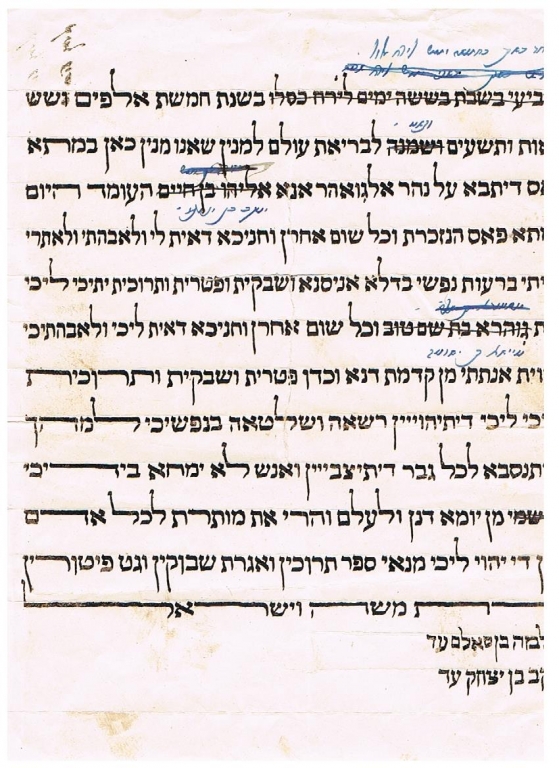 ביעי בשבת בששה ימים לירח כסלו בשנת חמשת אלפים ושש
אות ותשעים ושמנה לבריאת עולם למנין שאנו מנין כאן במתא
אס דיתבא על נהר אלגואהר אנא אליהו בן חיים העומד היום
יעקב בן
ותא פאס הנזכרת וכל שום אחרן וחניכא דאית לי ולאבהתי ולאתרי
יתי ברעות נפשי בדלא אניסנא ושבקית ופטרית ותרוכית יתיכי ליכי
ת גוהרא בת שם טוב וכל שום אחרן וחניכא דאית ליכי ולאבהתיכי
וית אנתתי מן קדמת דנא וכדן פטרית ושבקית ותרוכית
יכי ליכי דיתיהוייין רשאה ושלטאה בנפשיכי למהך
תנסבא לכל גבר דיתיצבייין ואנש לא ימחא בידיכי
שמי מן יומא דנן ולעלם והרי את מותרת לכל אדם
ן די יהוי ליכי מנאי ספר תרוכין ואגרת שבוקין וגט פיטורין
ת משה וישראל
למה בן סאלם עד
קב בן יצחק עד